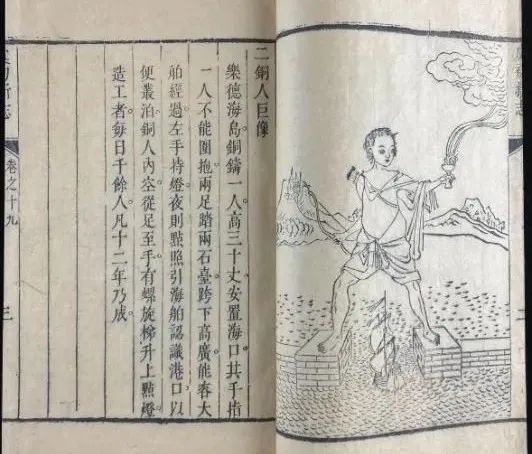 二銅人巨像
樂德海島銅鑄一人高三十丈安置海口其手指
一人不能圍抱兩足踏兩石臺跨下高廣能容大
舶經過左手持燈夜則點照引海舶認識港口以
便叢泊銅人內空從足至手有螺旋梯升上點燈
造工者每日千餘人凡十二年乃成
卷之十九
三